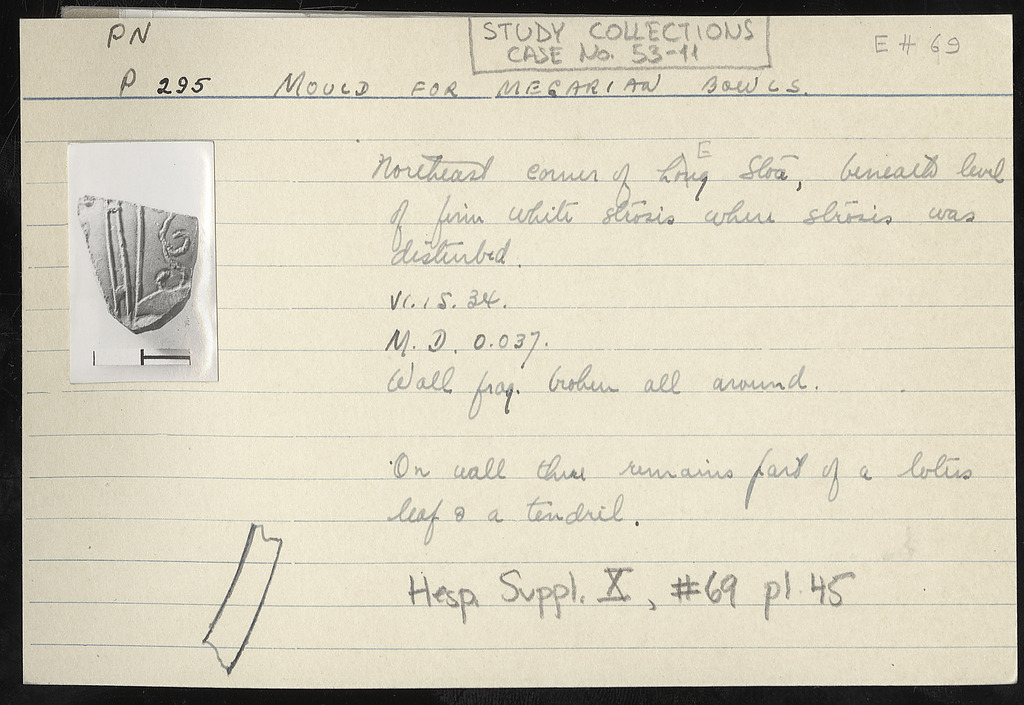 PN
STUDY COLLECTIONS
CASE No. 53-11
E # 69
P 295 MOULD FOR MEGARIAN BOWLS.
Northeast corner of Long E Stoa, beneath level
of firm white strosis where strosis was
disturbed.
VI.15.34.
M. D. 0.037.
Wall frag. broken all around.
On wall there remains part of a lotus
leaf & a tendril.
Hesp. Suppl. X, #69 pl. 45